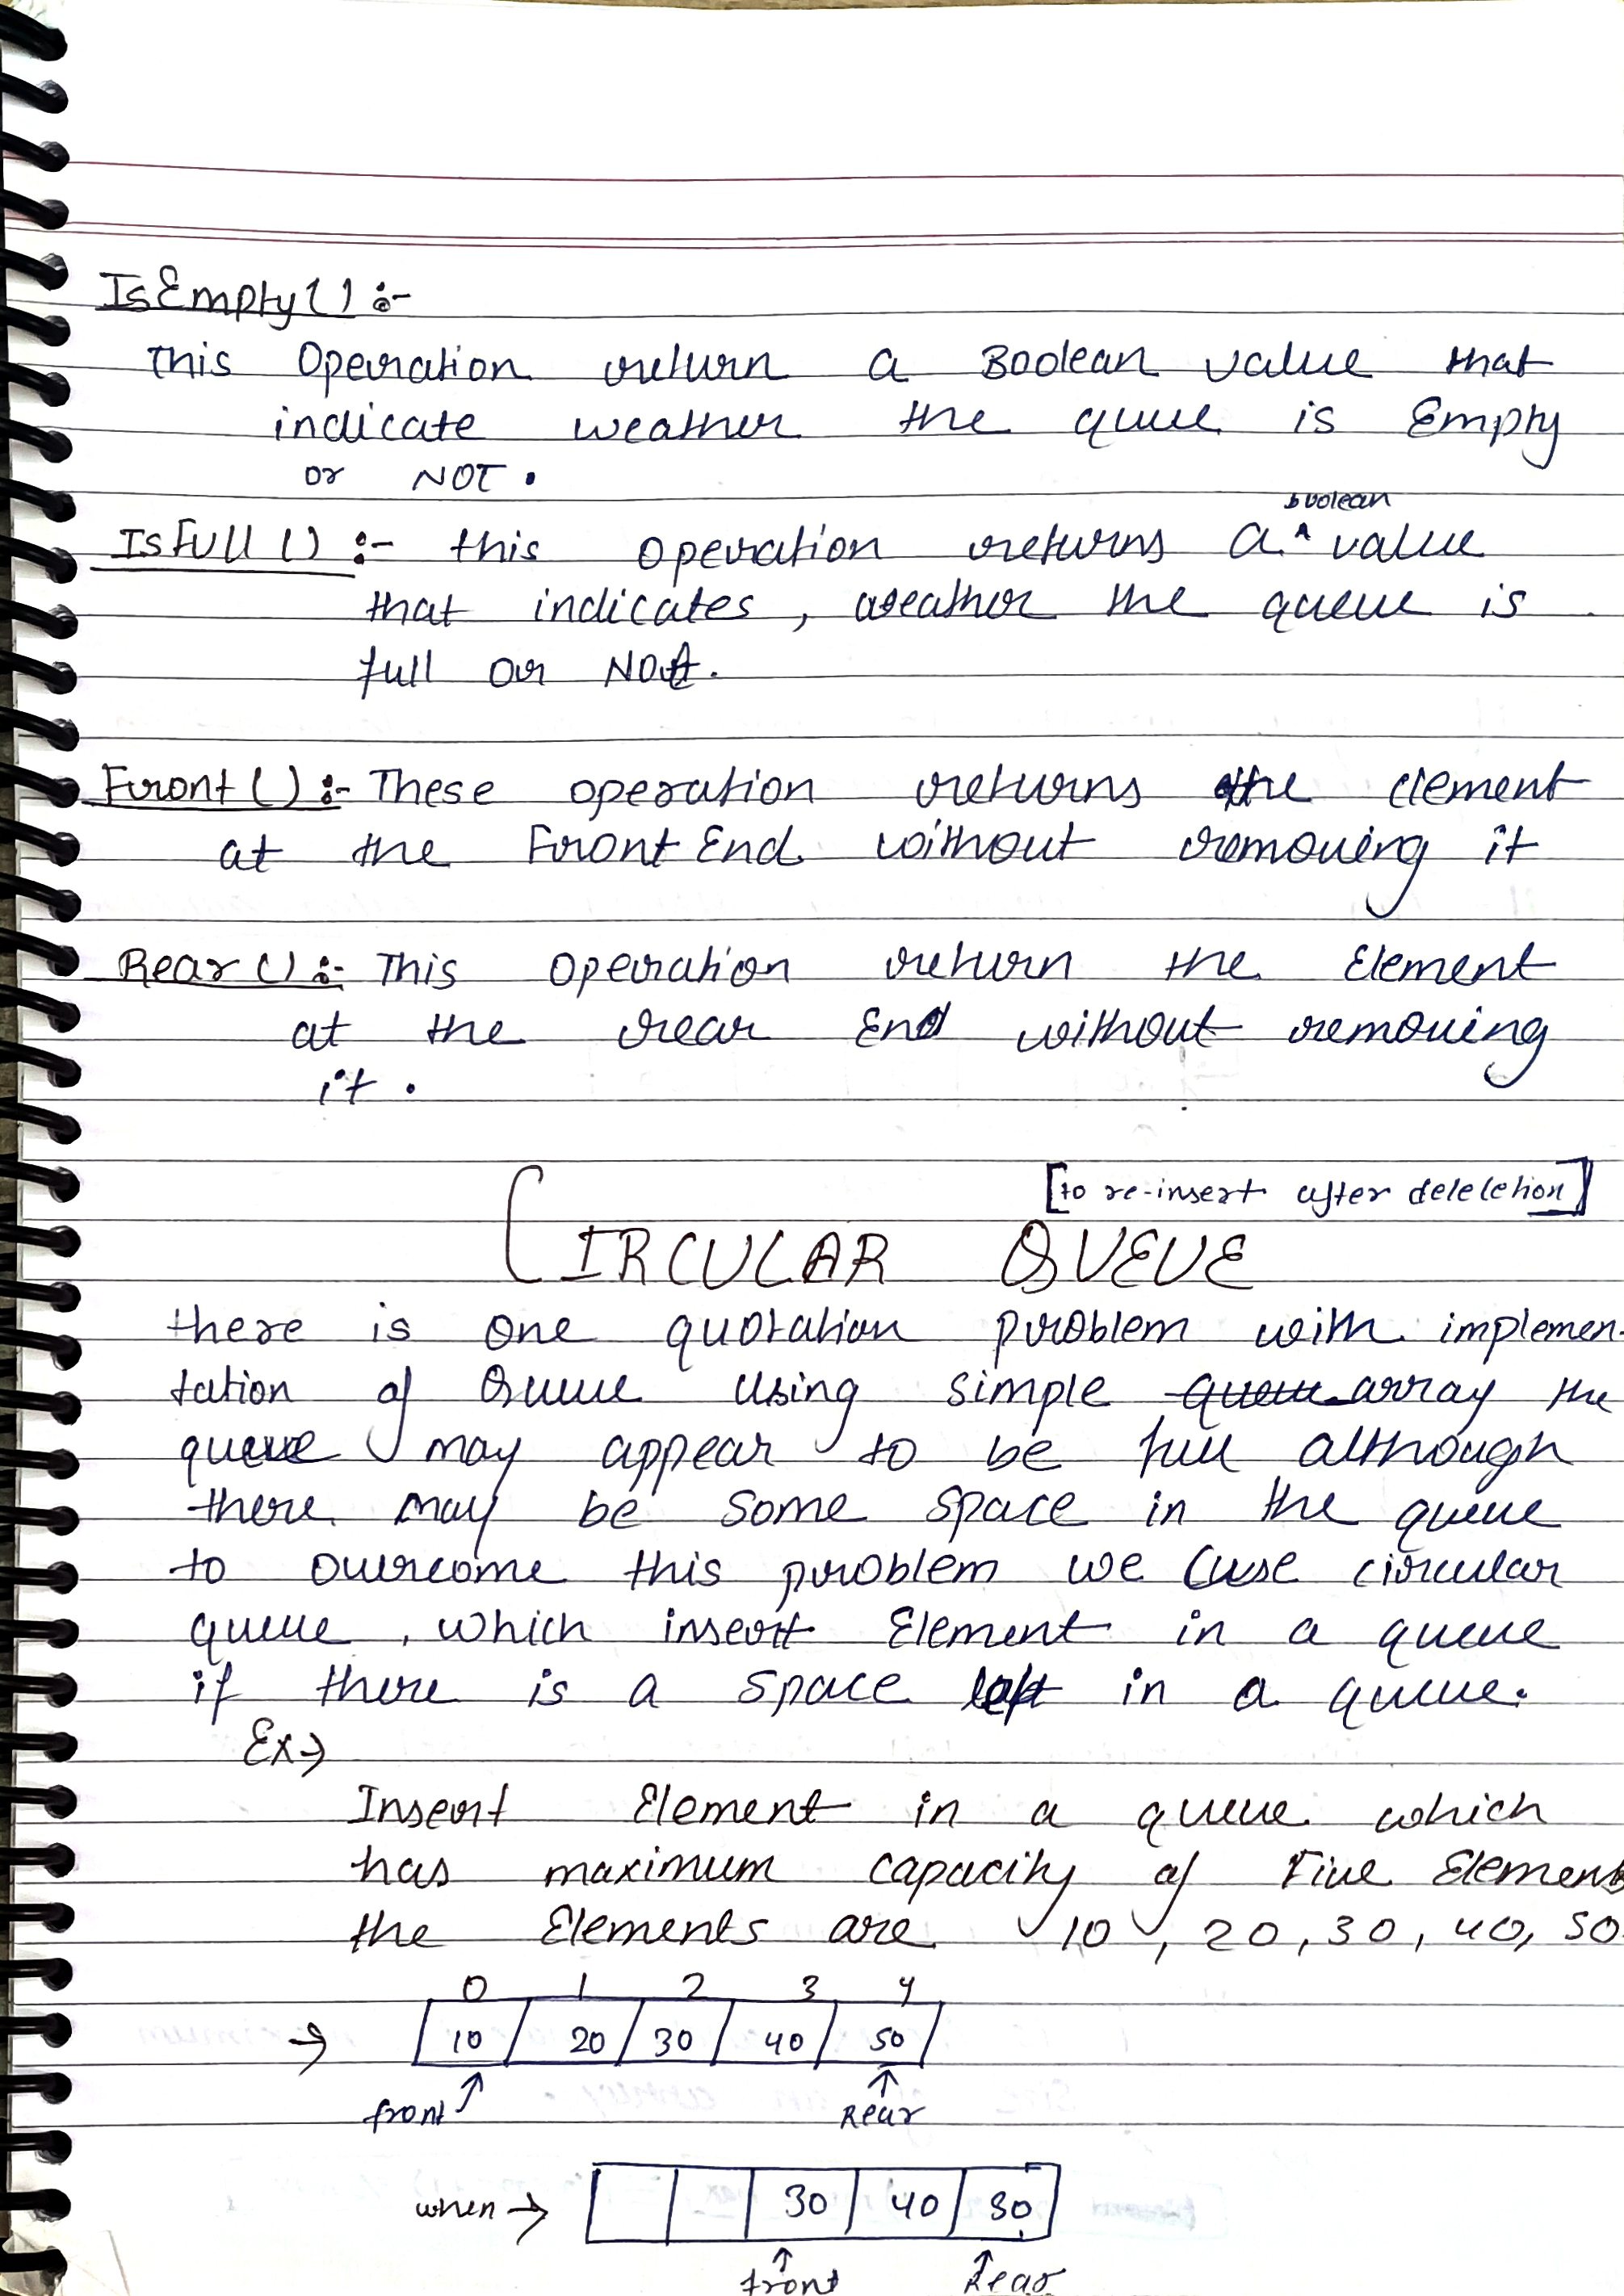 IsEmpty() :-
This Operation return a Boolean value that
indicate weather the queue is Empty
or NOT .
boolean
IsFull () :- this operation returns a ^ value
that indicates , weather the queue is
full or Not.
Front () :- These operation returns the element
at the Front End without removing it
Rear () :- This operation return the Element
at the rear End without removing
it .
[to re-insert after deletetion]
CIRCULAR QUEUE
there is one quotation problem with implemen-
tation of Queue using simple array the
queue may appear to be full although
there may be some space in the queue
to overcome this problem we use circular
queue , which insert Element in a queue
if there is a space left in a queue.
Ex→
Insert Element in a queue which
has maximum capacity of Five Elements
the Elements are 10 , 20 , 30 , 40, 50
0 1 2 3 4
→ 10 20 30 40 50
front Rear
when → 30 40 50
front Rear